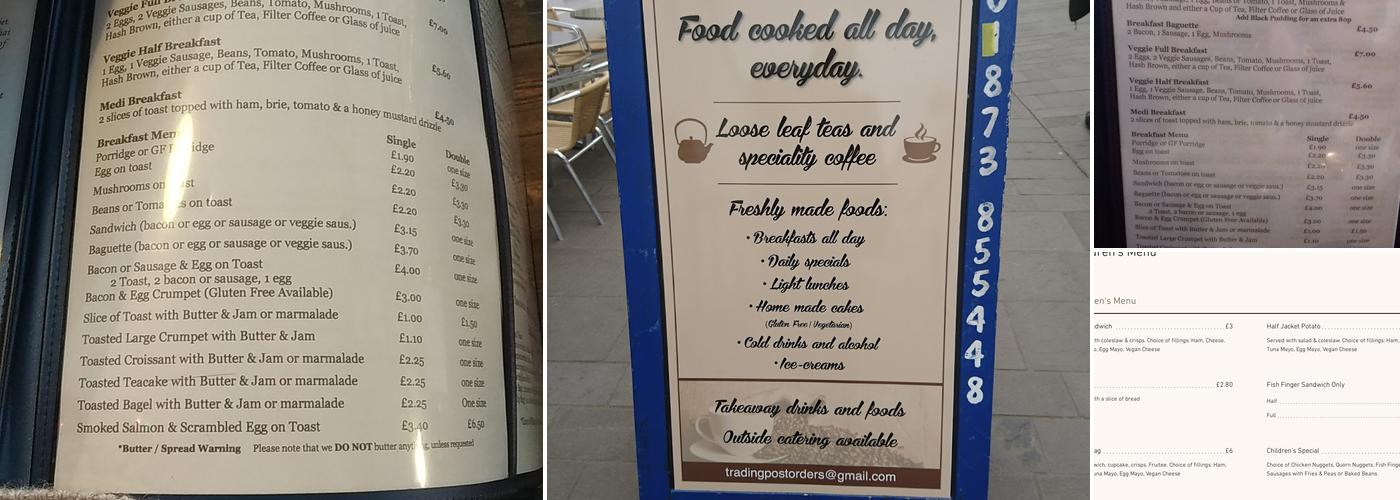 Veggie Full
2 Eggs, 2 Veggie Sausages, Beans, Tomato, Mushrooms, 1 Toast,
Hash Brown, either a cup of Tea, Filter Coffee or Glass of juice
£7.00
Veggie Half Breakfast
1 Egg, 1 Veggie Sausage, Beans, Tomato, Mushrooms, 1 Toast,
Hash Brown, either a cup of Tea, Filter Coffee or Glass of juice
£5.60
Medi Breakfast
2 slices of toast topped with ham, brie, tomato & a honey mustard drizzle
£4.50
Breakfast Menu Single Double
Porridge or GF Porridge £1.90 one size
Egg on toast £2.20 £3.30
Mushrooms on toast £2.20 £3.30
Beans or Tomatoes on toast £2.20 £3.30
Sandwich (bacon or egg or sausage or veggie saus.) £3.15 one size
Baguette (bacon or egg or sausage or veggie saus.) £3.70 one size
Bacon or Sausage & Egg on Toast £4.00 one size
2 Toast, 2 bacon or sausage, 1 egg
Bacon & Egg Crumpet (Gluten Free Available) £3.00 one size
Slice of Toast with Butter & Jam or marmalade £1.00 £1.50
Toasted Large Crumpet with Butter & Jam £1.10 one size
Toasted Croissant with Butter & Jam or marmalade £2.25 one size
Toasted Teacake with Butter & Jam or marmalade £2.25 one size
Toasted Bagel with Butter & Jam or marmalade £2.25 one size
Smoked Salmon & Scrambled Egg on Toast £3.40 £6.50
*Butter / Spread Warning Please note that we DO NOT butter anything, unless requested
Food cooked all day,
everyday.
Loose leaf teas and
speciality coffee
Freshly made foods:
• Breakfasts all day
• Daily specials
• Light lunches
• Home made cakes
(Gluten Free / Vegetarian)
• Cold drinks and alcohol
• Ice-creams
Takeaway drinks and foods
Outside catering available
tradingpostorders@gmail.com
01873 855448
Hash Brown and either a cup of Tea, Filter Coffee or Glass of juice
Add Black Pudding for an extra 80p
Breakfast Baguette £4.50
2 Bacon, 1 Sausage, 1 Egg, Mushrooms
Veggie Full Breakfast £7.00
2 Eggs, 2 Veggie Sausages, Beans, Tomato, Mushrooms, 1 Toast,
Hash Brown, either a cup of Tea, Filter Coffee or Glass of juice
Veggie Half Breakfast £5.60
1 Egg, 1 Veggie Sausage, Beans, Tomato, Mushrooms, 1 Toast,
Hash Brown, either a cup of Tea, Filter Coffee or Glass of juice
Medi Breakfast £4.50
2 slices of toast topped with ham, brie, tomato & a honey mustard drizzle
Breakfast Menu Single Double
Porridge or GF Porridge £1.90 one size
Egg on toast £2.20 £3.30
Mushrooms on toast £2.20 £3.30
Beans or Tomatoes on toast £2.20 £3.30
Sandwich (bacon or egg or sausage or veggie saus.) £3.15 one size
Baguette (bacon or egg or sausage or veggie saus.) £3.70 one size
Bacon or Sausage & Egg on Toast £4.00 one size
2 Toast, 2 bacon or sausage, 1 egg
Bacon & Egg Crumpet (Gluten Free Available) £3.00 one size
Slice of Toast with Butter & Jam or marmalade £1.00 £1.50
Toasted Large Crumpet with Butter & Jam £1.10 one size
ren's Menu
en's Menu
dwich £3
th coleslaw & crisps. Choice of fillings: Ham, Cheese,
o, Egg Mayo, Vegan Cheese
£2.80
th a slice of bread
ag £6
wich, cupcake, crisps, Fruitee. Choice of fillings: Ham,
una Mayo, Egg Mayo, Vegan Cheese
Half Jacket Potato
Served with salad & coleslaw. Choice of fillings: Ham,
Tuna Mayo, Egg Mayo, Vegan Cheese
Fish Finger Sandwich Only
Half
Full
Children's Special
Choice of Chicken Nuggets, Quorn Nuggets, Fish Finge
Sausages with Fries & Peas or Baked Beans